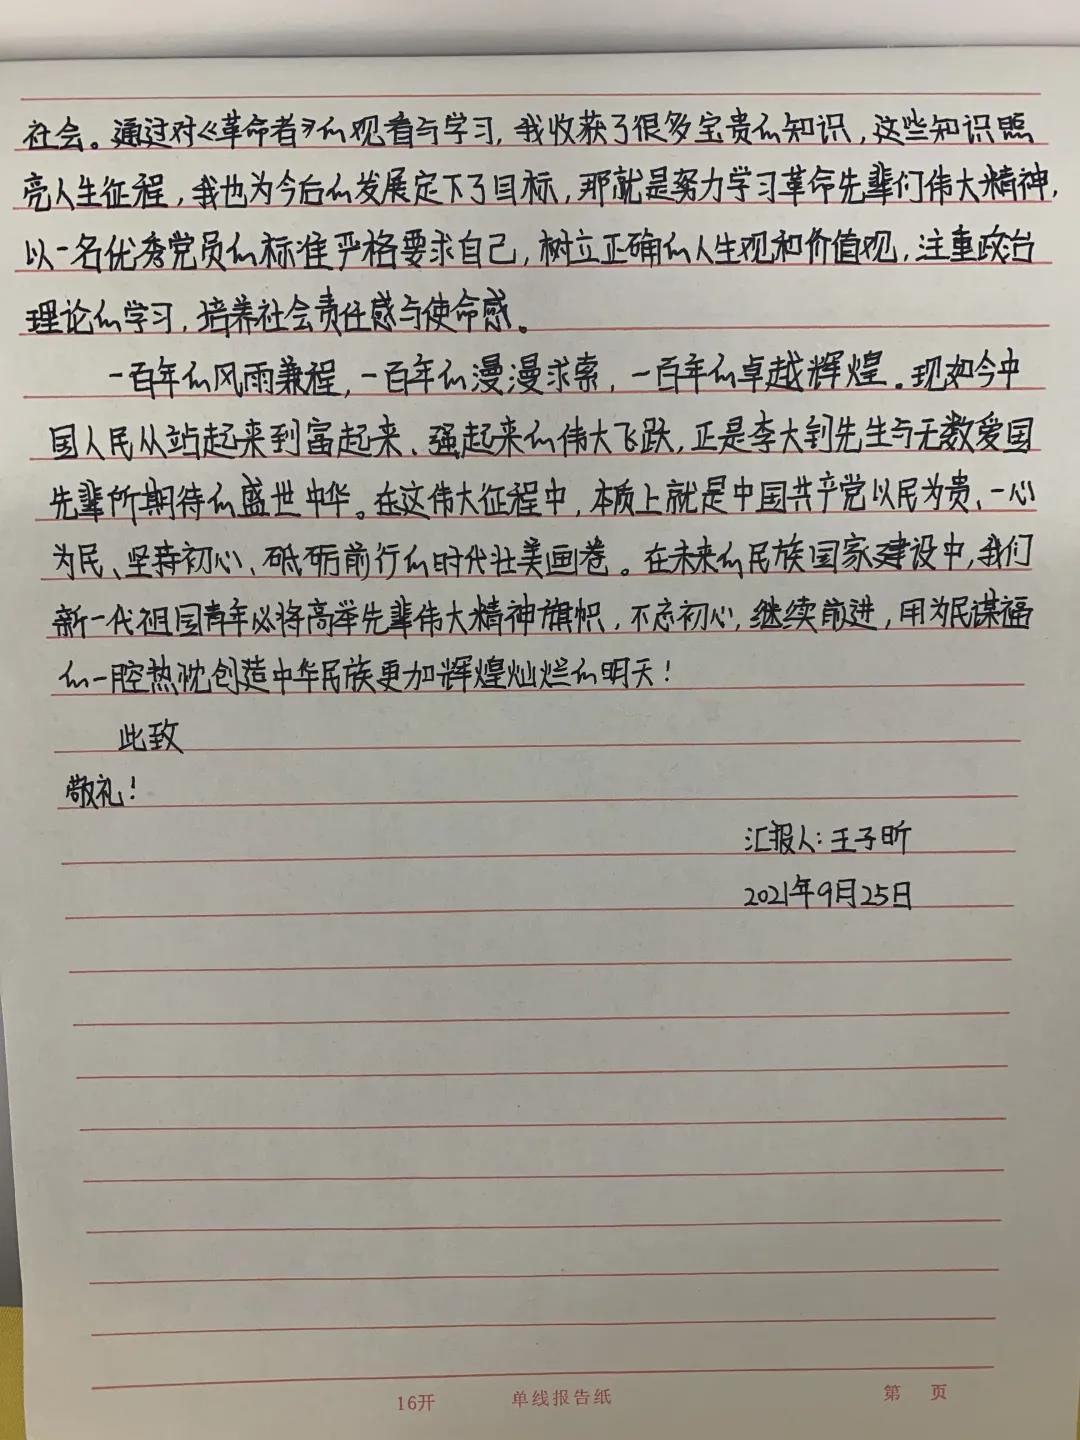 社会。通过对《革命者》的观看与学习，我收获了很多宝贵的知识，这些知识照
亮人生征程，我也为今后的发展定下了目标，那就是努力学习革命先辈们伟大精神，
以一名优秀党员的标准严格要求自己，树立正确的人生观和价值观，注重政治
理论的学习，培养社会责任感与使命感。
一百年的风雨兼程，一百年的漫漫求索，一百年的卓越辉煌。现如今中
国人民从站起来到富起来、强起来的伟大飞跃，正是李大钊先生与无数爱国
先辈所期待的盛世中华。在这伟大征程中，本质上就是中国共产党以民为贵、一心
为民、坚持初心、砥砺前行的时代壮美画卷。在未来的民族国家建设中，我们
新一代祖国青年必将高举先辈伟大精神旗帜，不忘初心，继续前进，用为民谋福
的一腔热忱创造中华民族更加辉煌灿烂的明天！
此致
敬礼！
汇报人：王子昕
2021年9月25日
16开 单线报告纸 第 页